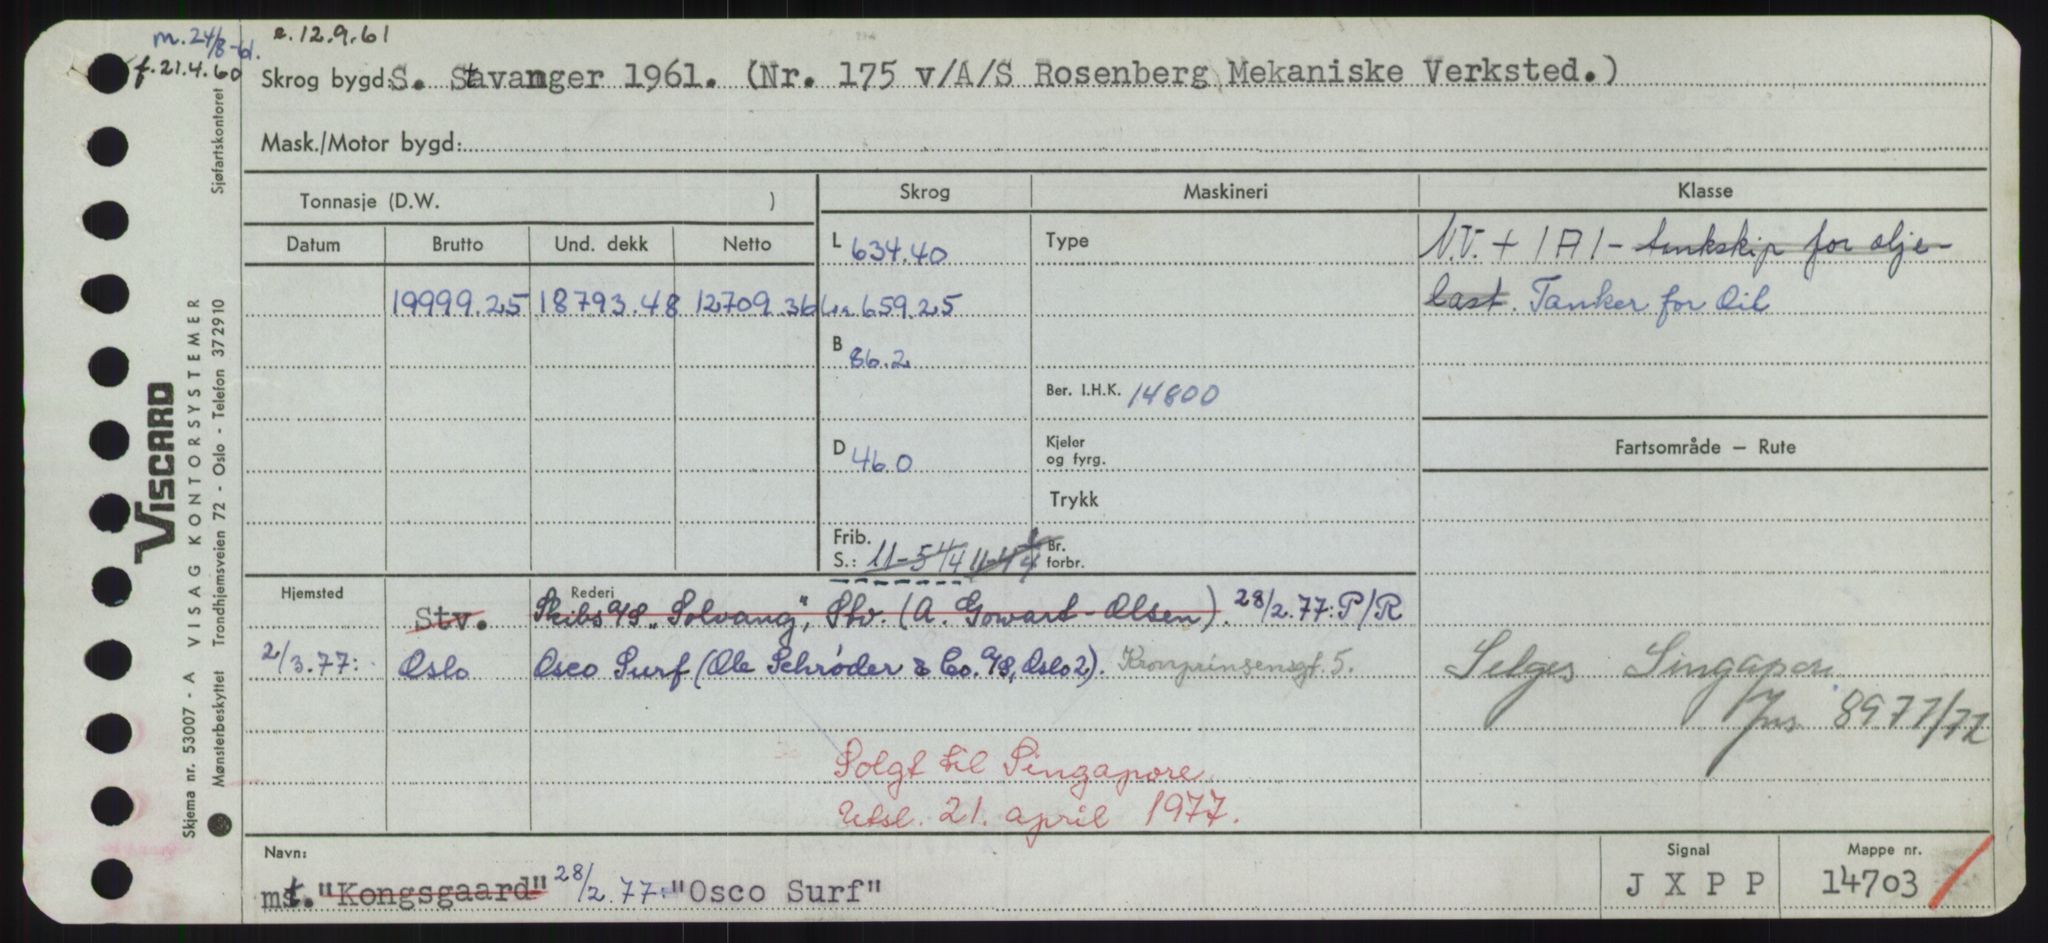 m. 24/8-61.
e. 12.9.61
f. 21.4.60
Skrog bygd: S. Stavanger 1961. (Nr. 175 v/A/S Rosenberg Mekaniske Verksted.)
Mask./Motor bygd:
Tonnasje (D.W. )
Skrog
Maskineri
Klasse
Datum
Brutto
Und. dekk
Netto
L 634.40
Type
N.V. + 1A1 - tankskip for olje-
19999.25 18793.48 12709.36
659.25
last. Tanker for Oil
B 86.2
Ber. I.H.K. 14800
D 46.0
Kjeler
og fyrg.
Fartsområde — Rute
Trykk
Frib.
S.: 11-5 1/4 11-4
Br.
forbr.
Hjemsted
Rederi
Stv. Skibs A/S "Solvang", Stv. (A. Gowart-Olsen). 28/2.77: P/R
2/3.77: Oslo Osco Surf (Ole Schrøder & Co. A/S, Oslo 2). Kronprinsensgt. 5.
Selges Singapore
8977/77
Solgt til Singapore
Utsl. 21. april 1977.
Navn:
Signal
Mappe nr.
mt. "Kongsgaard" 28/2.77: "Osco Surf"
J X P P
14703
VISCARD
Skjema nr. 53007 - A VISAG KONTORSYSTEMER
Mønsterbeskyttet Trondhjemsveien 72 - Oslo - Telefon 372910 Sjøfartskontoret